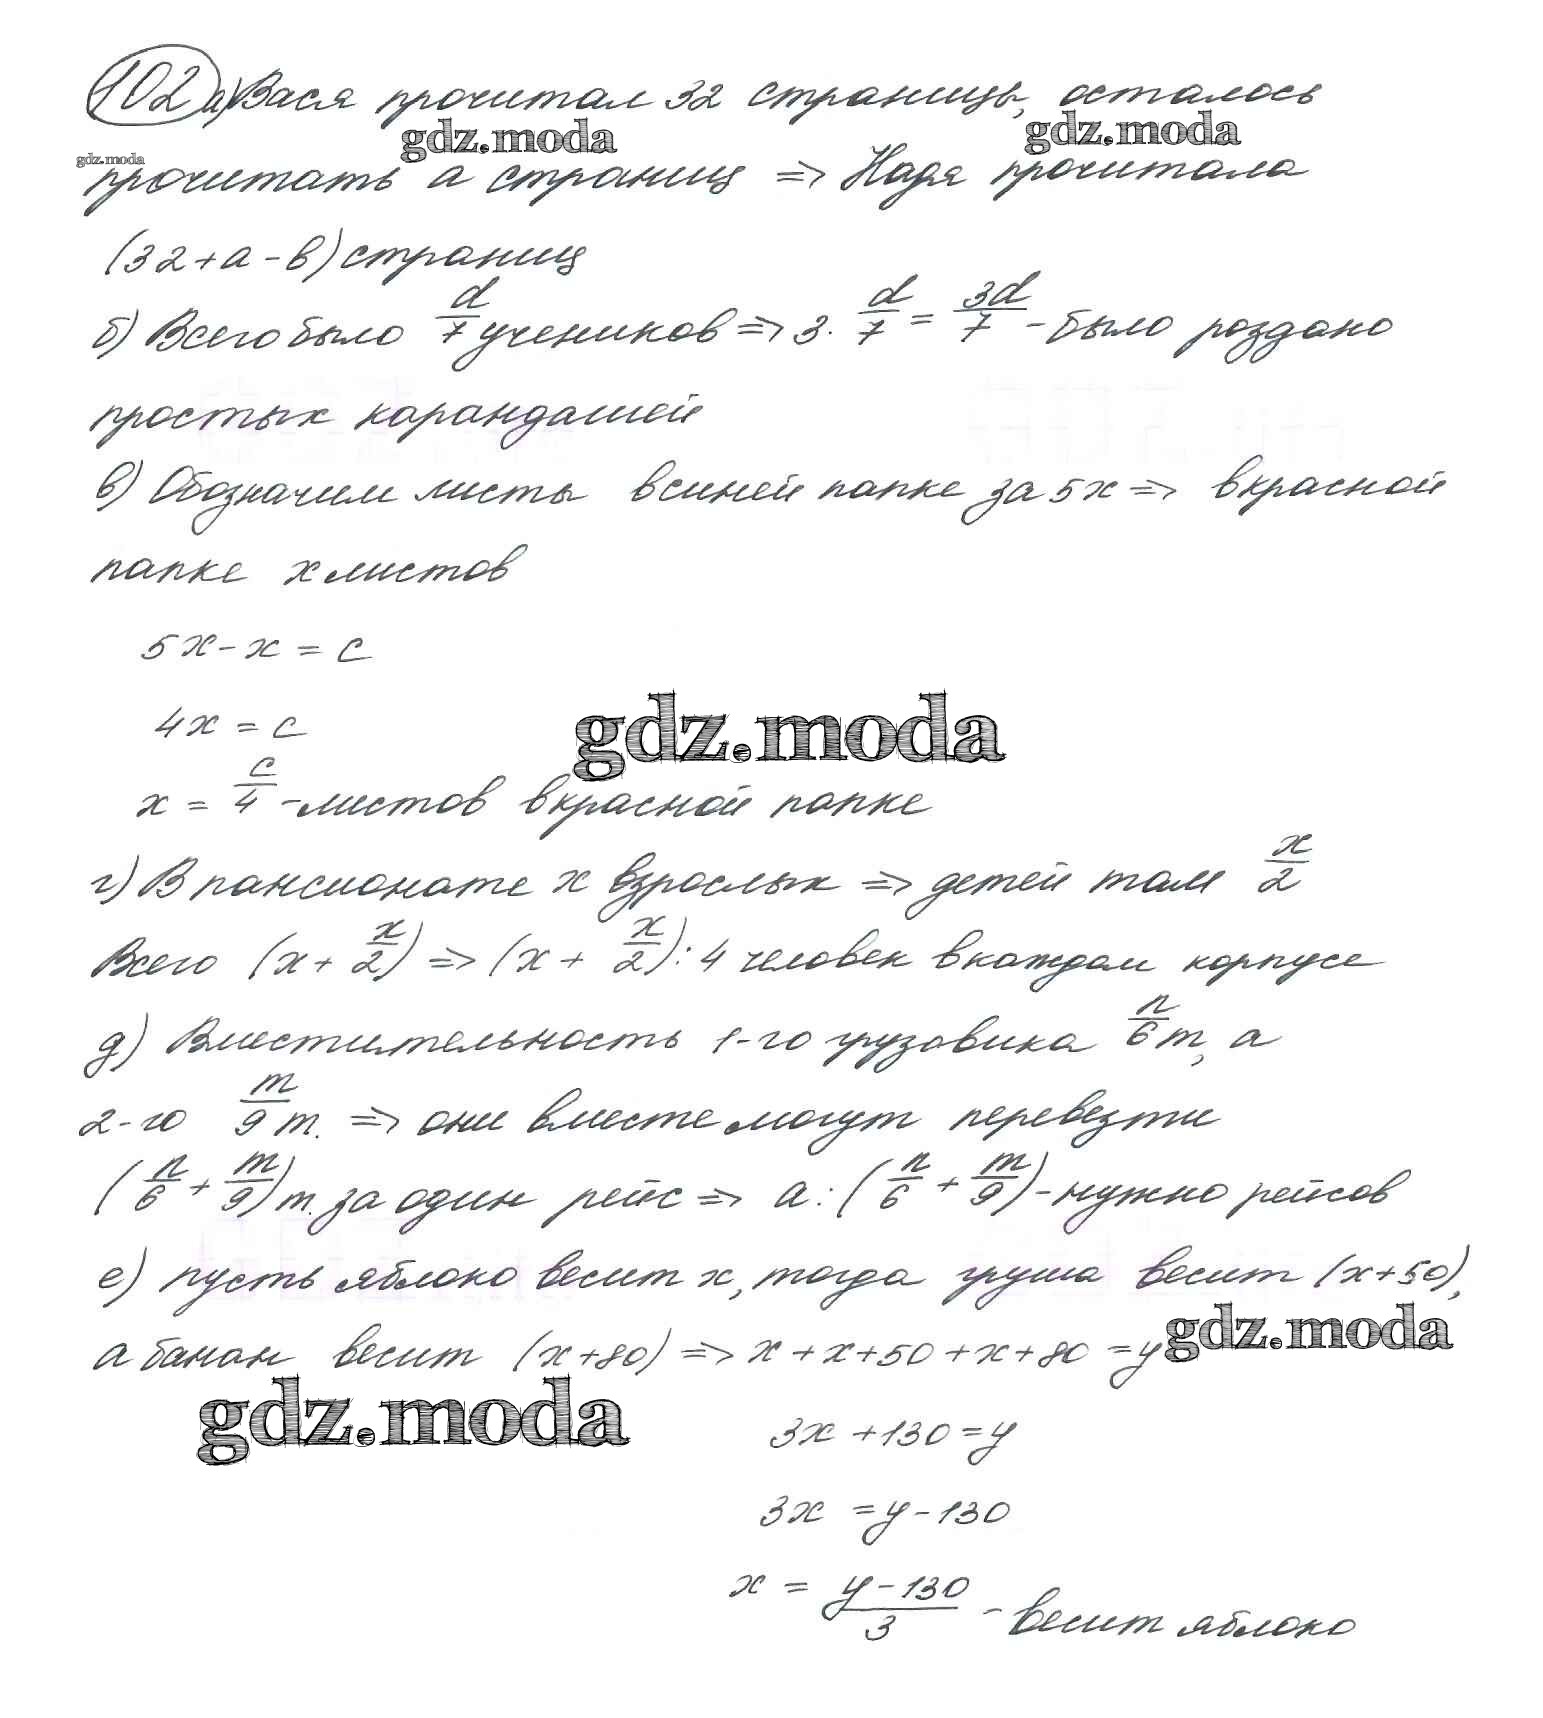 102 а) Вася прочитал 32 страницы, осталось
gdz.moda gdz.moda
gdz.moda
прочитать a страниц => Надя прочитала
(32+a-b) страниц
б) Всего было d/7 учеников => 3 · d/7 = 3d/7 - было роздано
простых карандашей
в) Обозначим листы в синей папке за 5x => в красной
папке x листов
5x - x = c
4x = c
gdz.moda
x = c/4 - листов в красной папке
г) В пансионате x взрослых => детей там x/2
Всего (x + x/2) => (x + x/2) : 4 человек в каждом корпусе
д) Вместительность 1-го грузовика n/6 т, а
2-го m/9 т. => они вместе могут перевезти
(n/6 + m/9) т. за один рейс => a : (n/6 + m/9) - нужно рейсов
е) пусть яблоко весит x, тогда груша весит (x+50),
gdz.moda
а банан весит (x+80) => x + x+50 + x+80 = y
gdz.moda
3x + 130 = y
3x = y - 130
x = y - 130/3 - весит яблоко